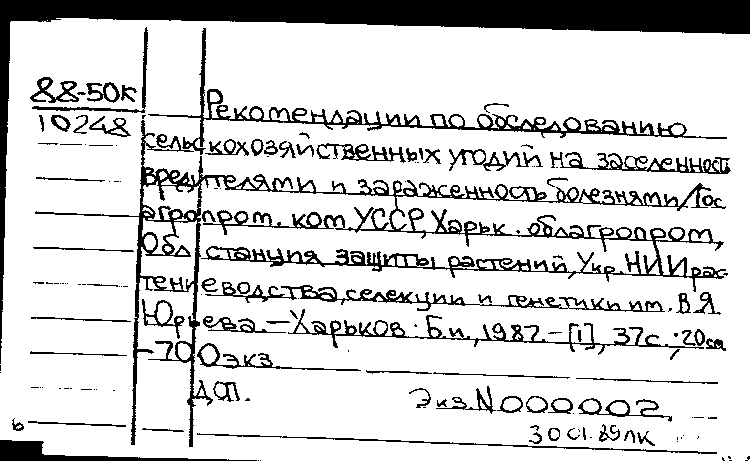 88-50к
10248
Рекомендации по обследованию
сельскохозяйственных угодий на заселенность
вредителями и зараженность болезнями/Гос
агропром. ком. УССР, Харьк. облагропром,
Обл станция защиты растений, Укр. НИИ рас-
тениеводства, селекции и генетики им. В.Я.
Юрьева.—Харьков: Б.и., 1987.—[1], 37с.; 20см
—700экз.
ДСП.
Экз. N000002.
30 01.89 ЛК